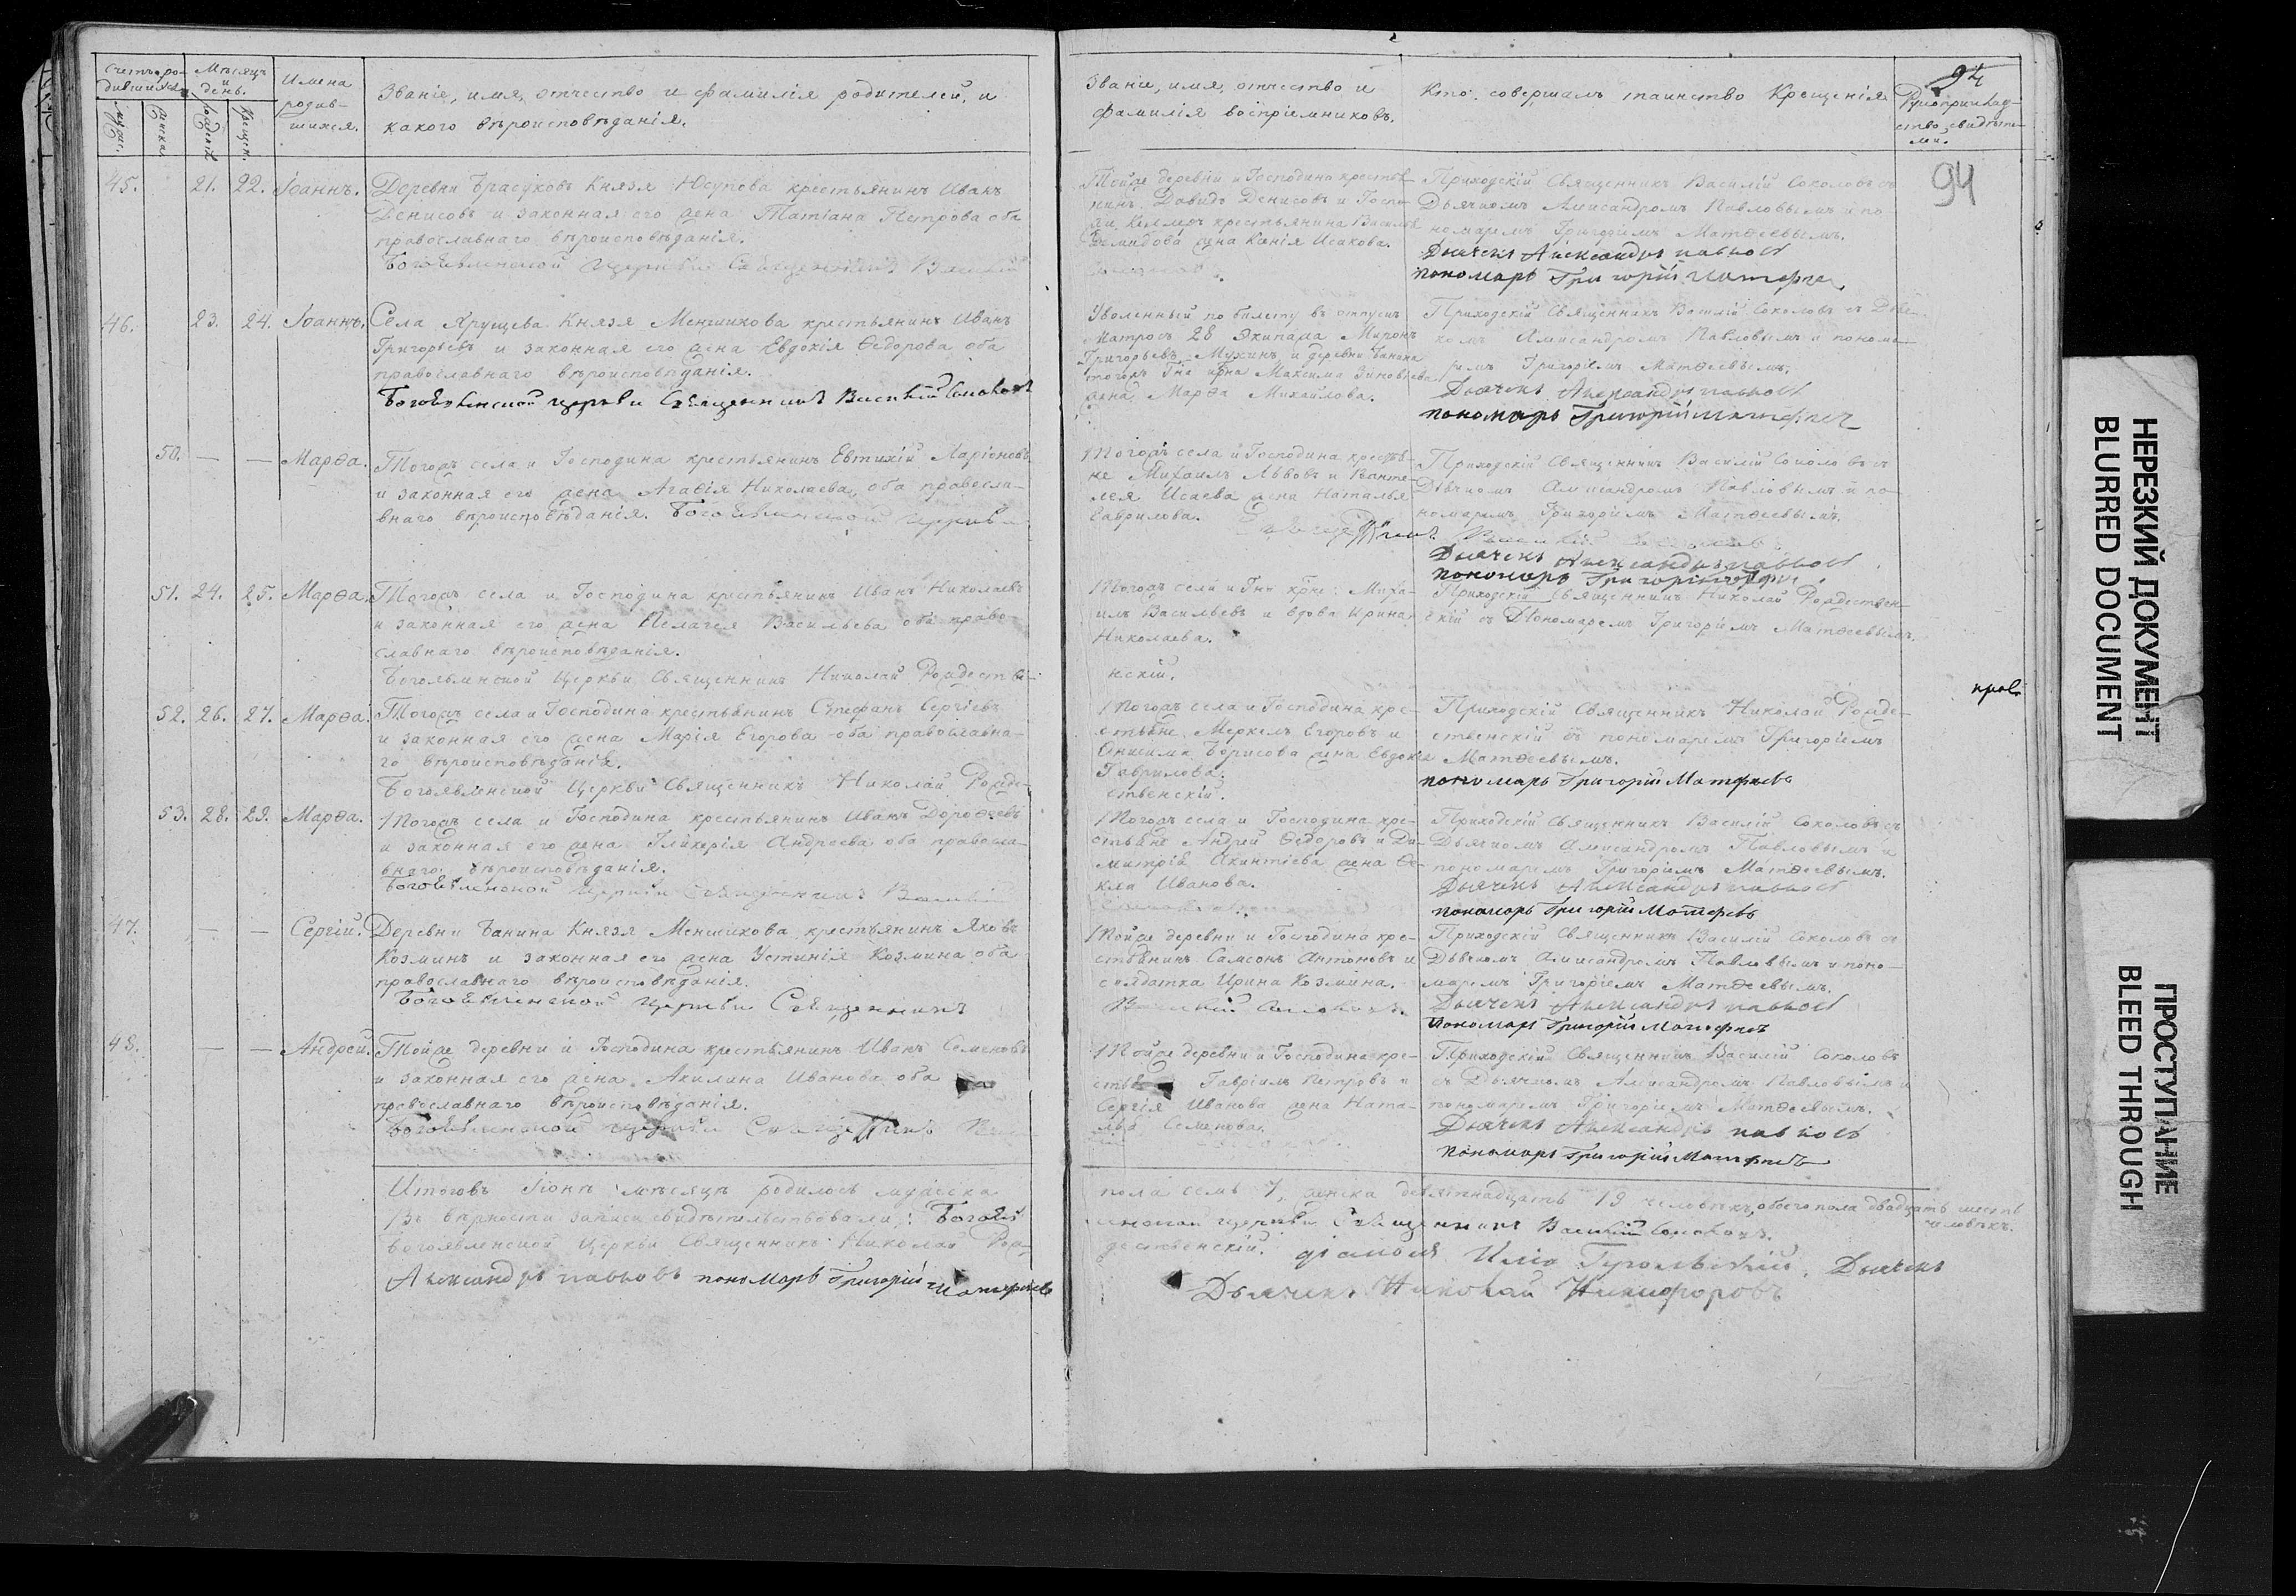 Счетъ ро-
дившихся.
Мѣсяцъ
и
день.
Имена
родив-
шихся.
Званіе, имя, отчество и фамилія родителей, и
какого вѣроисповѣданія.
45. 21. 22. Іоаннъ. Деревни Князя Юсупова крестьянинъ Иванъ
Денисовъ и законная его жена Татіана Петрова оба
православнаго вѣроисповѣданія.
Богоявленской церкви Священникъ Василій
46. 23. 24. Іоаннъ. Села Хрущева Князя Меншикова крестьянинъ Иванъ
Григорьевъ и законная его жена Евдокія Ѳедорова оба
православнаго вѣроисповѣданія.
Богоявленской церкви Священникъ Василий Соколовъ
50. — — Марѳа. Тогожъ села и Господина крестьянинъ Евтихій Ларіоновъ
и законная его жена Агаѳія Николаева, оба правосла-
внаго вѣроисповѣданія. Богоявленской церкви
51. 24. 25. Марѳа. Тогожъ села и Господина крестьянинъ Иванъ Николаевъ
и законная его жена Пелагея Васильева оба право-
славнаго вѣроисповѣданія.
Богоявленской Церкви Священникъ Николай Рождестве-
52. 26. 27. Марѳа. Тогожъ села и Господина крестьянинъ Стефанъ Сергіевъ
и законная его жена Марія Егорова оба православна-
го вѣроисповѣданія.
Богоявленской Церкви Священникъ Николай Рожде-
53. 28. 29. Марѳа. Тогожъ села и Господина крестьянинъ Иванъ Дороѳеевъ
и законная его жена Гликерія Андреева оба правосла-
внаго вѣроисповѣданія.
Богоявленской церкви Священникъ
47. — — Сергій. Деревни Банина Князя Меншикова крестьянинъ Яковъ
Козминъ и законная его жена Устинія Козмина оба
православнаго вѣроисповѣданія.
Богоявленской церкви Священникъ
48. — — Андрей. Тойже деревни и Господина крестьянинъ Иванъ Семеновъ
и законная его жена Акилина Иванова оба
православнаго вѣроисповѣданія.
Богоявленской церкви Священникъ
Итоговъ Іюнѣ мѣсяцѣ родилось мужеска
Въ вѣрности записи свидѣтельствовали: Богояв
Богоявленской Церкви Священникъ Николай Рож-
Александръ павловъ пономарь Григорій Матфѣевъ
Званіе, имя, отчество и
фамилія воспріемниковъ.
Кто совершалъ таинство Крещенія.
94
Рукоприклад-
ство свидѣте-
94
Тойже деревни и Господина крестья-
нинъ Давидъ Денисовъ и Госпо-
крестьянина
жена Исакова.
Приходскій Священникъ Василій Соколовъ съ
Дьячкомъ Александромъ Павловымъ и по
номаремъ Григоріемъ Матѳеевымъ.
Дьячекъ Александръ павловъ
пономарь Григорій Матфѣевъ
Уволенный по билету въ отпускъ
Матросъ 28 Экипажа Миронъ
Григорьевъ Мухинъ и деревни Банина
тогожъ Максима Зиновьева
жена Марѳа Михайлова.
Приходскій Священникъ Василій Соколовъ съ Дья-
комъ Александромъ Павловымъ и понома-
ремъ Григоріемъ Матѳеевымъ.
Дьячекъ Александръ павловъ
пономарь Григорій Матфѣевъ
Тогожъ села и Господина крестья-
не Михаилъ Львовъ и Панте-
лея Исаева жена Наталья
Гаврилова.
Приходскій Священникъ Василій Соколовъ съ
Дьячкомъ Александромъ Павловымъ и по-
номаремъ Григоріемъ Матѳеевымъ.
Дьячекъ Александръ павловъ
пономарь Григорій
Тогожъ села и Миха-
илъ Васильевъ и вдова Ирина
Николаева.
нскій.
Приходскій Священникъ Николай Рождествен-
скій съ Пономаремъ Григоріемъ Матѳеевымъ.
прав
Тогожъ села и Господина кре-
стьяне Меркелъ Егоровъ и
Анисима Борисова жена Евдокія
Гаврилова.
ственскій.
Приходскій Священникъ Николай Рожде-
ственскій съ пономаремъ Григоріемъ
Матѳеевымъ.
пономарь Григорій Матфѣевъ
Тогожъ села и Господина кре-
стьяне Андрей Ѳедоровъ и Ди-
митрія Акинтіева жена Ѳе-
кла Иванова.
Приходскій Священникъ Василій Соколовъ съ
Дьячкомъ Александромъ Павловымъ и
пономаремъ Григоріемъ Матѳеевымъ.
Дьячекъ Александръ павловъ
пономарь Григорій Матфѣевъ
Тойже деревни и Господина кре-
стьянинъ Самсонъ Антоновъ и
солдатка Ирина Козмина.
Василій Соколовъ.
Приходскій Священникъ Василій Соколовъ съ
Дьячкомъ Александромъ Павловымъ и поно-
маремъ Григоріемъ Матѳеевымъ.
Дьячекъ Александръ павловъ
пономарь Григорій Матфѣевъ
Тойже деревни и Господина кре-
Гавріилъ Петровъ и
Сергія Иванова жена Ната-
лья Семенова.
Приходскій Священникъ Василій Соколовъ
съ Дьячкомъ Александромъ Павловымъ и
пономаремъ Григоріемъ Матѳеевымъ.
Дьячекъ Александръ павловъ
пономарь Григорій Матфѣевъ
пола семь 7, женска девятнадцать 19 человѣкъ, обоего пола двадцать шесть
человѣкъ.
церкви Священникъ Василий Соколовъ.
дественскій. Діаконъ Илія Дьячекъ
Дьячекъ Николай Никифоровъ
НЕРЕЗКИЙ ДОКУМЕНТ
BLURRED DOCUMENT
ПРОСТУПАНИЕ
BLEED THROUGH